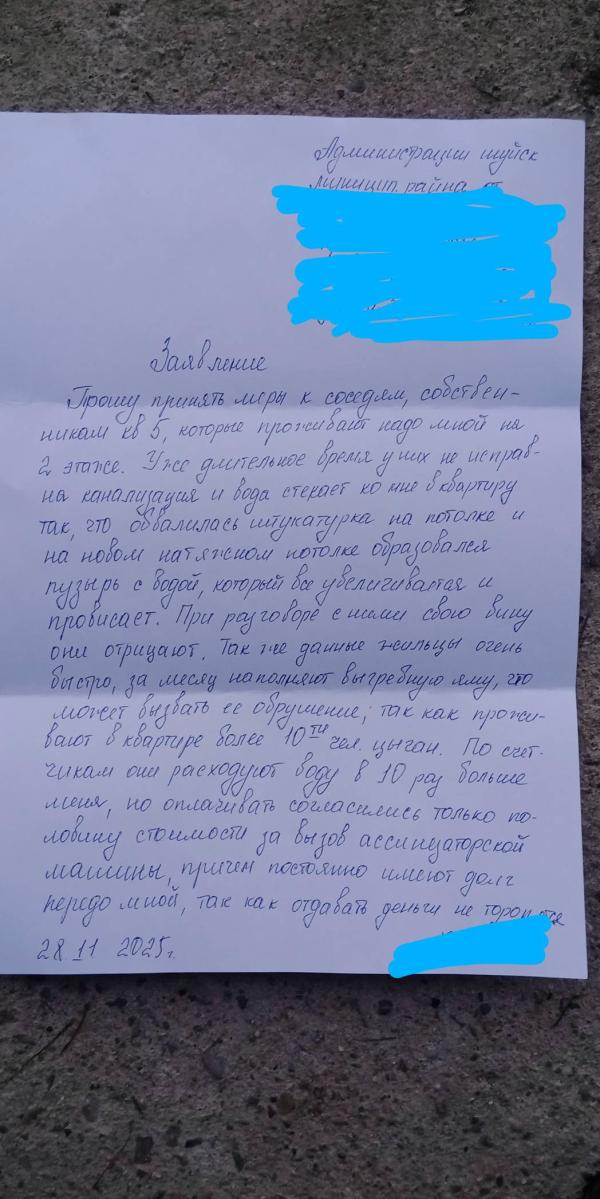 Администрации шуйск
муницип. райна от
Заявление
Прошу принять меры к соседям, собствен-
никам кв 5, которые проживают надо мной на
2 этаже. Уже длительное время у них не исправ-
на канализация и вода стекает ко мне в квартиру
так, что обвалилась штукатурка на потолке и
на новом натяжном потолке образовался
пузырь с водой, который все увеличивается и
провисает. При разговоре с ними свою вину
они отрицают. Так же данные жильцы очень
быстро, за месяц наполняют выгребную яму, что
может вызвать ее обрушение, так как прожи-
вают в квартире более 10ти чел. цыган. По счет-
чикам они расходуют воду в 10 раз больше
меня, но оплачивать согласились только по-
ловину стоимости за вызов ассинизаторской
машины, причем постоянно имеют долг
передо мной, так как отдавать деньги не торопятся
28.11 2025г.